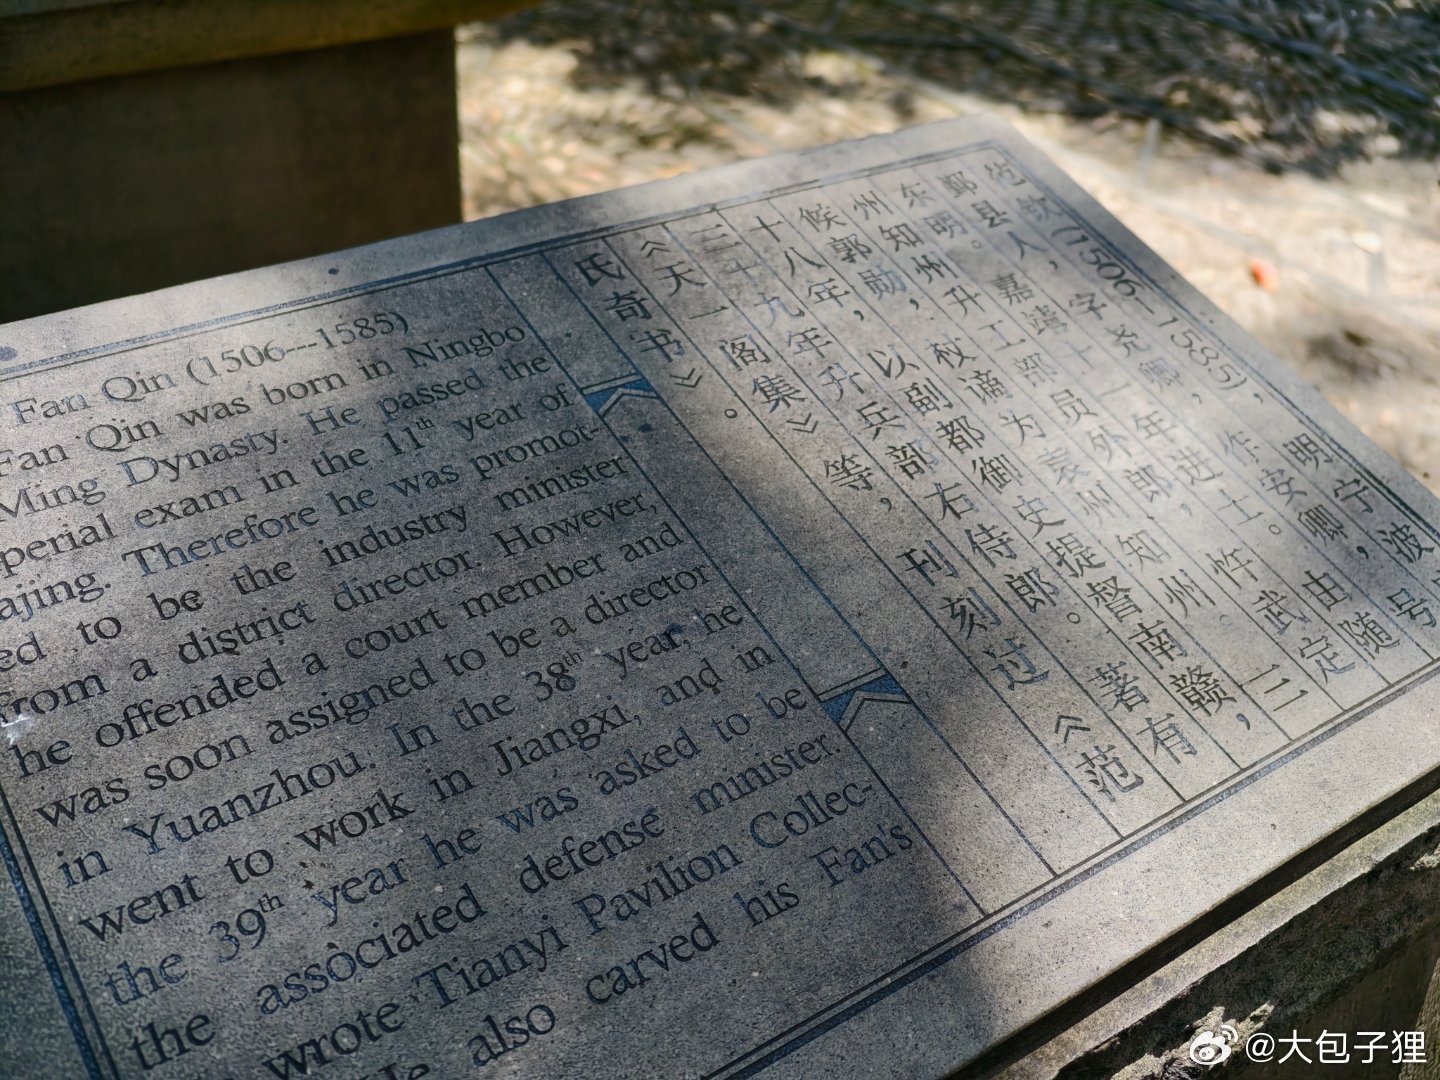 Fan Qin (1506---1585)
Fan Qin was born in Ningbo
Ming Dynasty. He passed the
perial exam in the 11th year of
ajing. Therefore he was promot-
ed to be the industry minister
from a district director. However,
he offended a court member and
was soon assigned to be a director
in Yuanzhou. In the 38th year, he
went to work in Jiangxi, and in
the 39th year he was asked to be
the associated defense minister.
wrote Tianyi Pavilion Collec-
He also carved his Fan's
范钦(1506—1585),明宁波
鄞县人,字尧卿,一作安卿,号
东明。嘉靖十一年进士。由随
州知州升工部员外郎,忤武定
候郭勋,权谪为袁州知州。三
十八年,以副都御史提督南赣,
三十九年升兵部右侍郎。著有
《天一阁集》等,刊刻过《范
氏奇书》。
@大包子狸